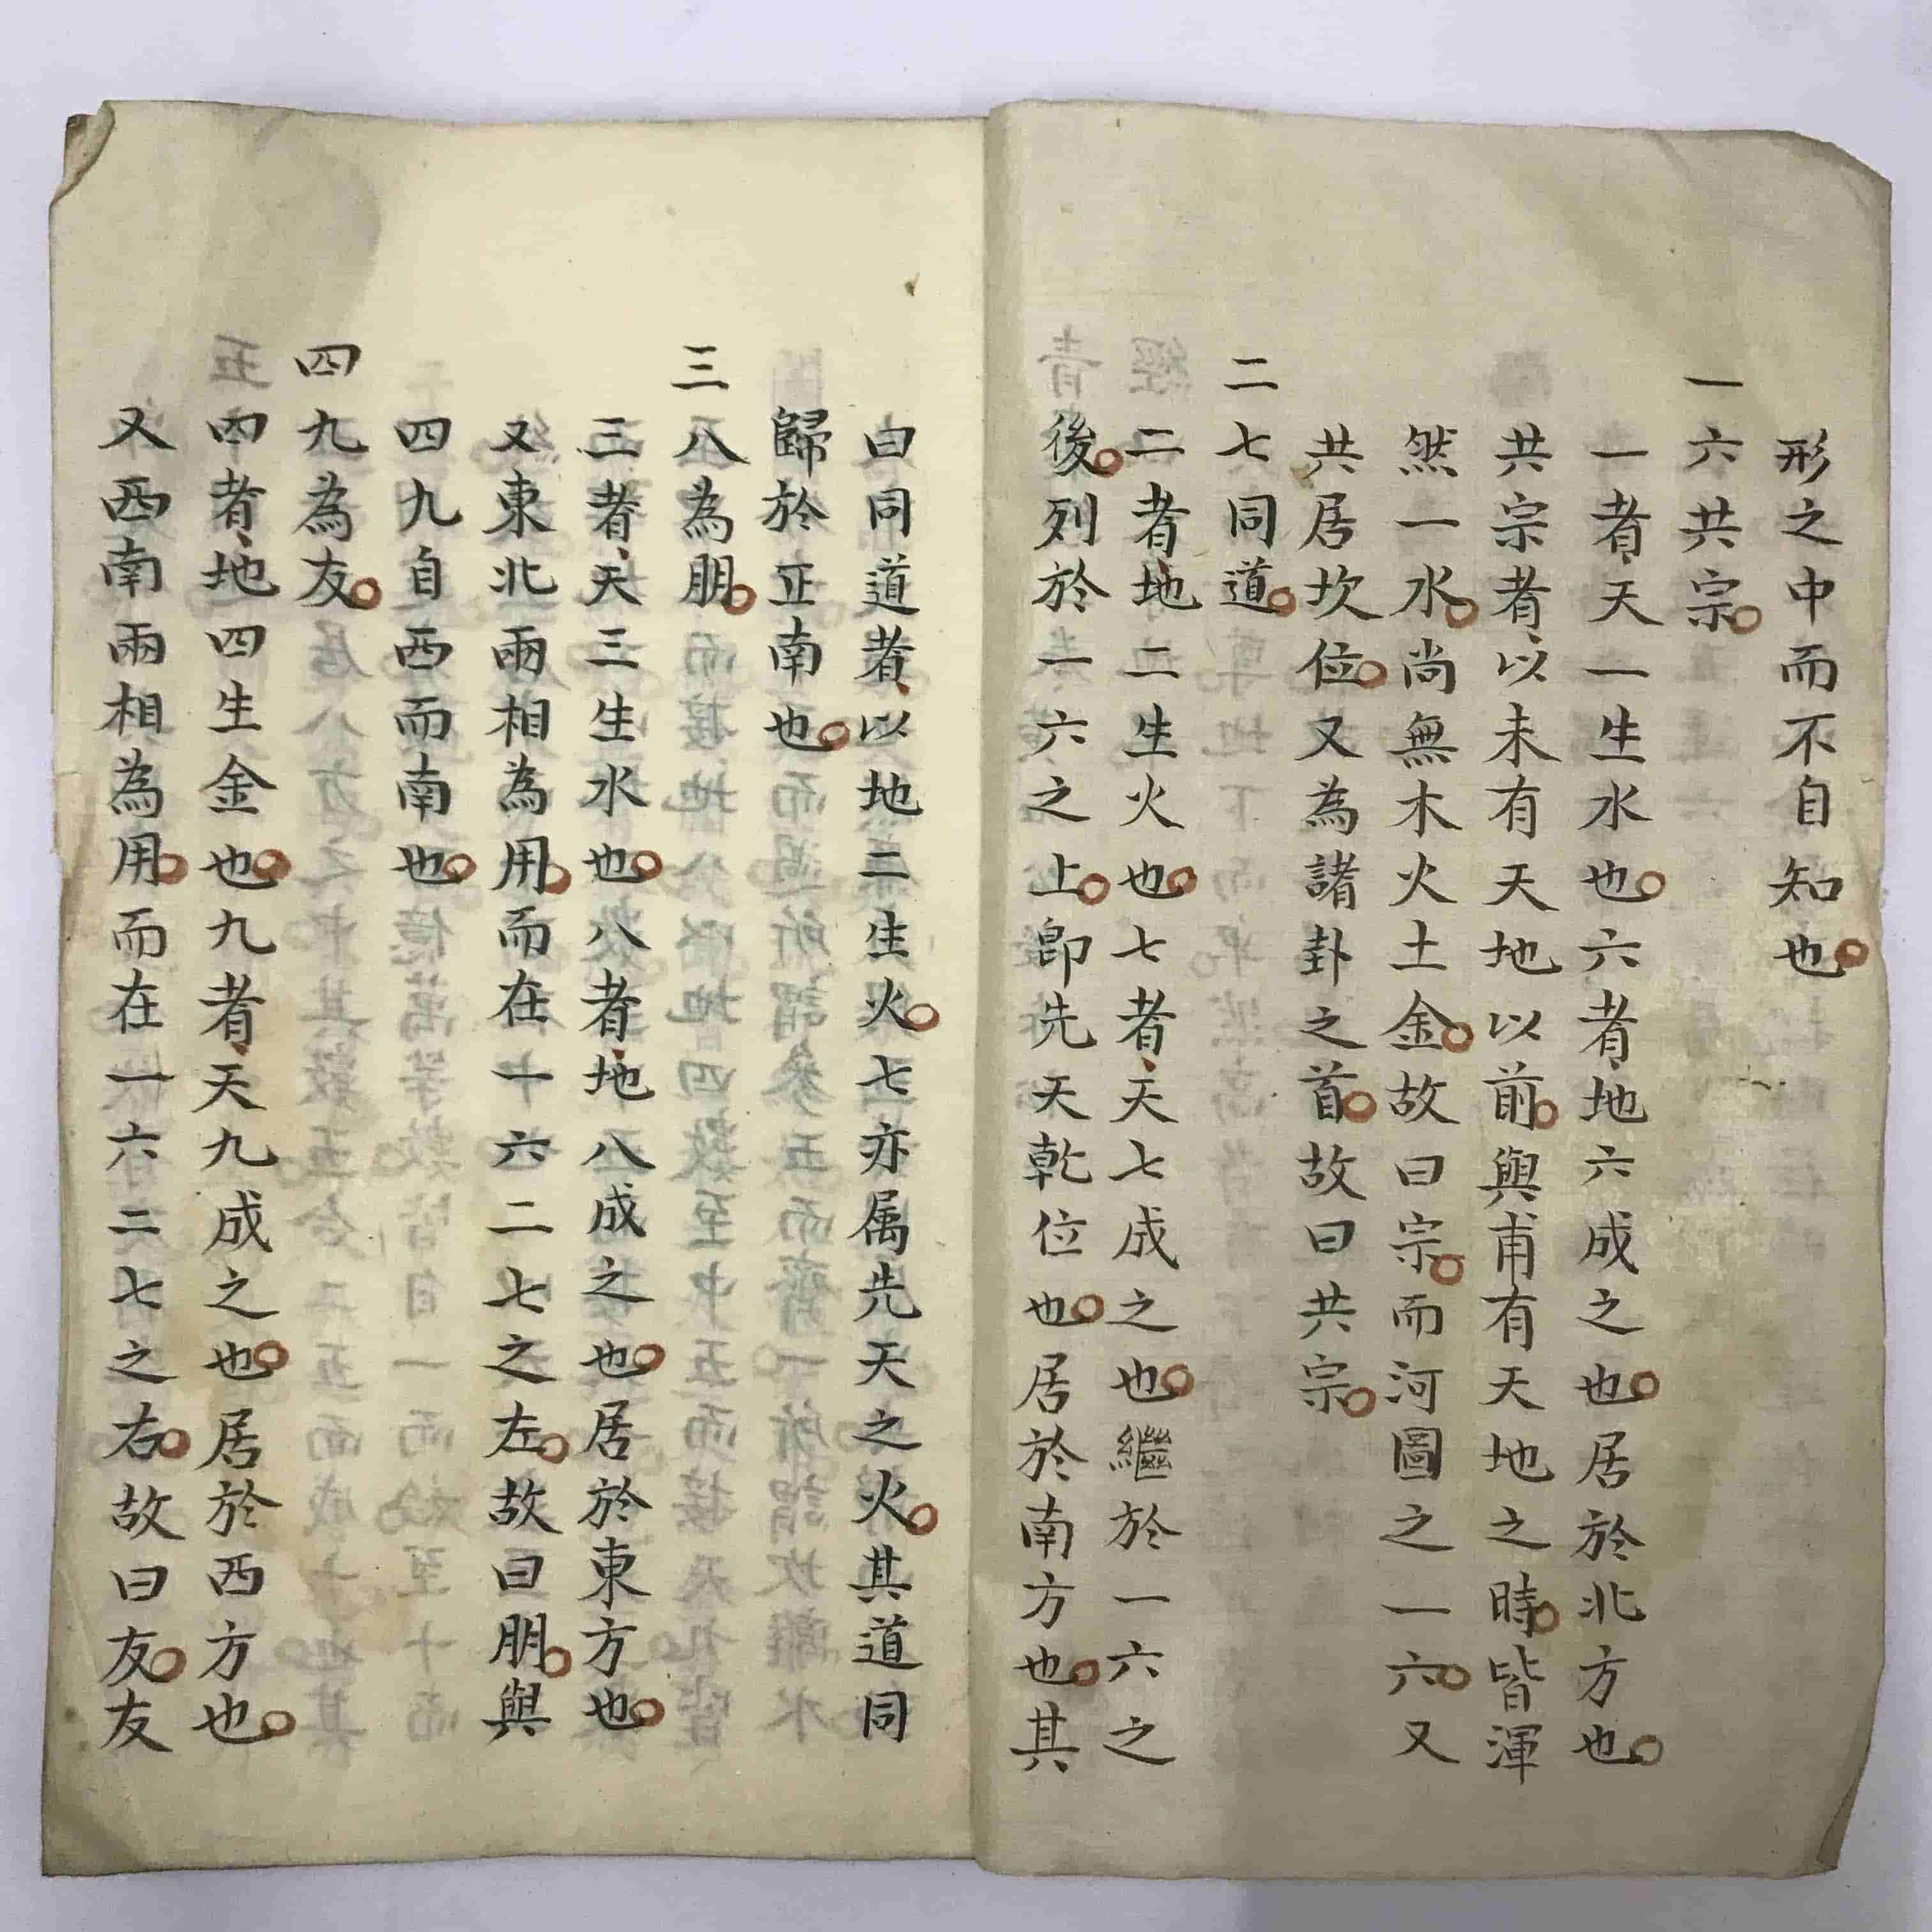 形之中而不自知也
一六共宗
一者天一生水也六者地六成之也居於北方也
共宗者以未有天地以前與甫有天地之時皆渾
然一水尚無木火土金故曰宗而河圖之一六又
共居坎位又為諸卦之首故曰共宗
二七同道
二者地二生火也七者天七成之也繼於一六之
後列於一六之上即先天乾位也居於南方也其
曰同道者以地二生火七亦属先天之火其道同
歸於正南也
三八為朋
三者天三生水也八者地八成之也居於東方也
又東北兩相為用而在一六二七之左故曰朋與
四九自西而南也
四九為友
四者地四生金也九者天九成之也居於西方也
又西南兩相為用而在一六二七之右故曰友友